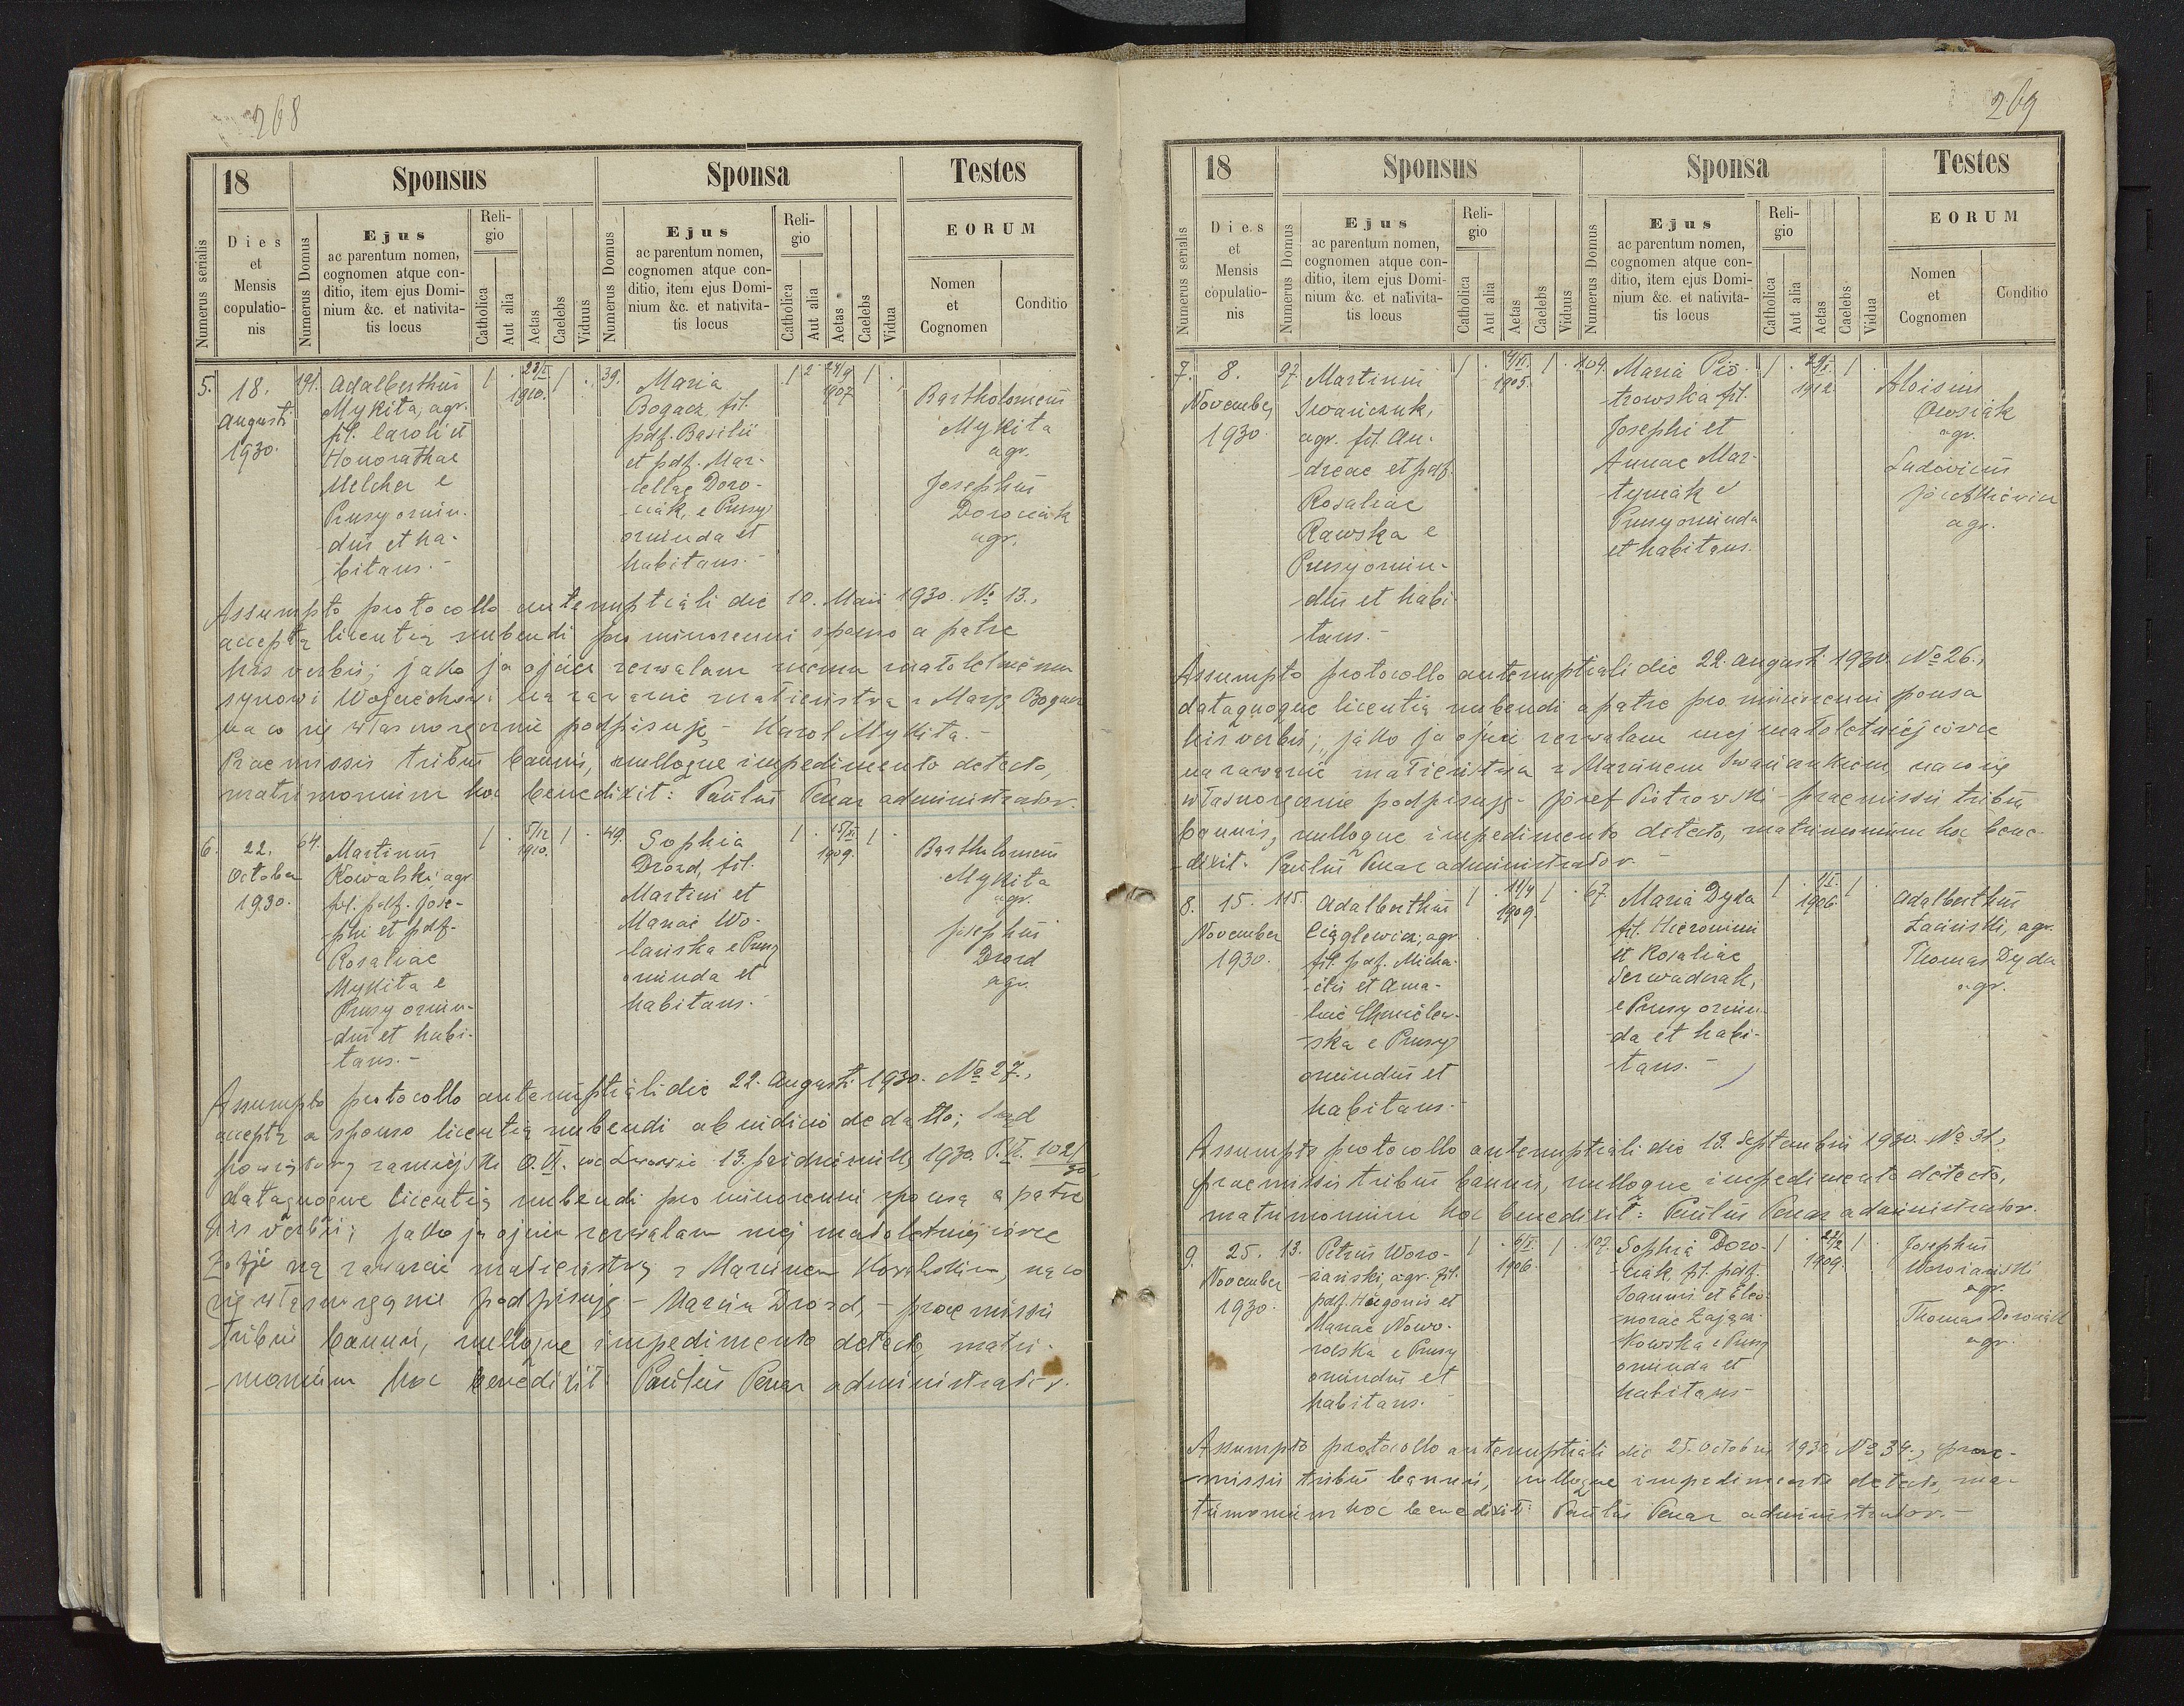 268
18
Sponsus
Sponsa
Testes
Numerus serialis
Dies
et
Mensis
copulatio-
nis
Numerus Domus
Ejus
ac parentum nomen,
cognomen atque con-
ditio, item ejus Domi-
nium &c. et nativita-
tis locus
Reli-
gio
Catholica
Aut alia
Aetas
Caelebs
Viduus
Numerus Domus
Ejus
ac parentum nomen,
cognomen atque con-
ditio, item ejus Domi-
nium &c. et nativita-
tis locus
Reli-
gio
Catholica
Aut alia
Aetas
Caelebs
Vidua
EORUM
Nomen
et
Cognomen
Conditio
5.
18.
Augusti
1930.
191.
Adalberthus
Mykita, agr.
fil. Caroli et
Honorathae
Melcher e
Prusy oriun-
-dus et ha-
bitans.-
1910.
39.
Maria
Bogacz, fil.
pdf. Basilii
et pdf. Mar-
-cellae Doro-
-ciak, e Prusy
oriunda et
habitans.-
24/9
1907
Bartholomeus
Mykita
agr.
Josephus
Dorociak
agr.
Assumpto protocollo antenuptiali die 10. Maii 1930. No 13.,
accepta licentia nubendi pro minorenni sponso a patre
his verbis; jako ja ojciec zezwalam memu małoletniemu
synowi Wojciechowi na zawarcie małżeństwa z Marją Bogacz
na co się własnoręcznie podpisuję - Karol Mykita.-
Praemissis tribus bannis, nulloque impedimento detecto,
matrimonium hoc benedixit: Paulus Penar administrator.
6.
22.
October
1930.
64.
Martinus
Kowalski, agr
fil. pdf. Jose-
-phi et pdf-
Rosaliae
Mykita e
Prusy oriun-
-dus et habi-
-tans.-
5/12
1910.
49.
Sophia
Drozd, fil.
Martini et
Mariae Wo-
-lańska e Prusy
oriunda et
habitans.-
15/XI
1909.
Bartholomeus
Mykita
agr.
Josephus
Drozd
agr.
Assumpto protocollo antenuptiali die 22. Augusti 1930. No 27.,
accepta a sponso licentia nubendi ab iudicio de datto; Sąd
powiatowy zamiejski O.VI. we Lwowie 13. października 1930. P.VI. 102/30
dataquoque licentia nubendi pro minorenni sponsa a patre
his verbis; jako ja ojciec zezwalam mej małoletniej córce
Zofji na zawarcie małżeństwa z Marcinem Kowalskim, na co
się własnoręcznie podpisuję - Marcin Drozd, - praemissis
tribus bannis, nulloque impedimento detecto, matri-
-monium hoc benedixit: Paulus Penar administrator.
269
18
Sponsus
Sponsa
Testes
Numerus serialis
Dies
et
Mensis
copulatio-
nis
Numerus Domus
Ejus
ac parentum nomen,
cognomen atque con-
ditio, item ejus Domi-
nium &c. et nativita-
tis locus
Reli-
gio
Catholica
Aut alia
Aetas
Caelebs
Vidus
Numerus Domus
Ejus
ac parentum nomen,
cognomen atque con-
ditio, item ejus Domi-
nium &c. et nativita-
tis locus
Reli-
gio
Catholica
Aut alia
Aetas
Caelebs
Vidua
EORUM
Nomen
et
Cognomen
Conditio
7.
8.
November
1930.
97.
Martinus
Iwańczuk,
agr. fil. An-
-dreae et pdf.
Rosaliae
Rawska e
Prusy oriun-
dus et habi-
tans.-
1905.
109.
Maria Pio-
trowska fil.
Josephi et
Annae Mar-
tyniak e
Prusy oriunda
et habitans.
1912.
Aloisius
Owsiak
agr.
Ludovicus
Jacełkiewicz
agr.
Assumpto protocollo antenuptiali die 22. Augusti 1930. No 26.,
dataquoque licentia nubendi a patre pro minorenni sponsa
his verbis; "jako ja ojciec zezwalam mej małoletniej córce
na zawarcie małżeństwa z Marcinem Iwańczukiem, na co się
własnoręcznie podpisuję - Józef Piotrowski - praemissis tribus
bannis, nulloque impedimento detecto, matrimonium hoc bene-
-dixit. Paulus Penar administrator.-
8.
15.
November
1930.
115.
Adalberthus
Ciąglewicz, agr
fil. pdf. Micha-
-elis et Ama-
-liae Chmielew-
-ska e Prusy
oriundus et
habitans.-
11/4
1909
67.
Maria Dyda
fil. Hieronimi
et Rosaliae
Serwadczak,
e Prusy oriun-
-da et habi-
-tans.-
1906.
Adalberthus
Łaciński, agr.
Thomas Dyda
agr.
Assumpto protocollo antenuptiali die 13. Septembris 1930. No 31.,
praemissis tribus bannis, nulloque impedimento detecto,
matrimonium hoc benedixit: Paulus Penar administrator.
9.
25.
November
1930.
13.
Petrus Woro-
-żański, agr. fil.
pdf. Hugonis et
Mariae Nowo-
-rolska e Prusy
oriundus et
habitans.
1906.
107.
Sophia Doro-
-ciak, fil. pdf.
Joannis et Eleo-
norae Zającz-
-kowska e Prusy
oriunda et
habitans-
22/2
1909.
Josephus
Worożański
agr.
Thomas Dorociak
agr.
Assumpto protocollo antenuptiali die 25. Octobris 1930. No 34., prae-
-missis tribus bannis, nulloque impedimento detecto, ma-
trimonium hoc benedixit: Paulus Penar administrator.-